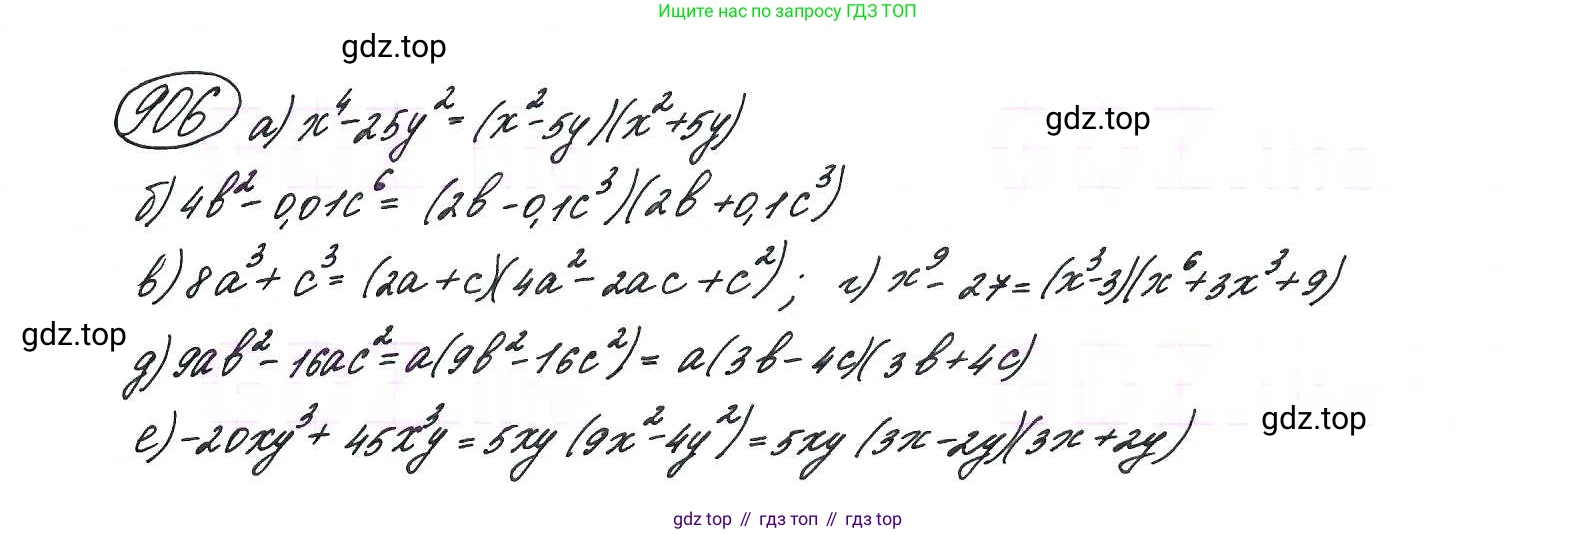 Ищите нас по запросу ГДЗ ТОП
gdz.top
906 а) x⁴-25y² = (x²-5y)(x²+5y)
gdz.top
б) 4b²-0,01c⁶ = (2b-0,1c³)(2b+0,1c³)
в) 8a³+c³ = (2a+c)(4a²-2ac+c²); г) x⁹-27 = (x³-3)(x⁶+3x³+9)
gdz.top
д) 9ab²-16ac² = a(9b²-16c²) = a(3b-4c)(3b+4c)
gdz.top
е) -20xy³+45x³y = 5xy(9x²-4y²) = 5xy(3x-2y)(3x+2y)
gdz top // гдз топ // гдз top